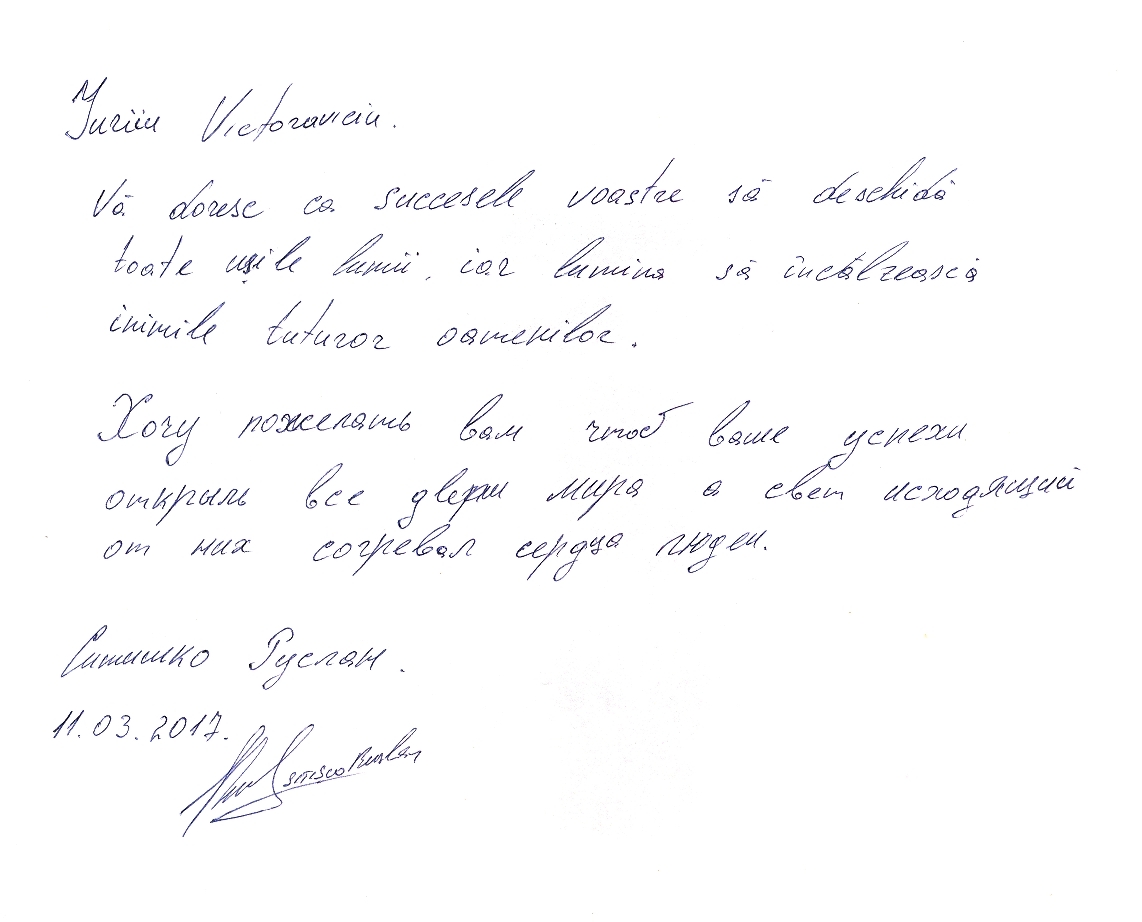 Iuriiu Victoraviciu.
Vă doresc ca succesele voastre să deschidă
toate ușile lumii, iar lumina să încălzească
inimile tuturor oamenilor.
Хочу пожелать вам чтоб ваше успехи
открыль все двери мира а свет исходящий
от них согревал сердца людей.
Руслан.
11.03.2017.
Ruslan